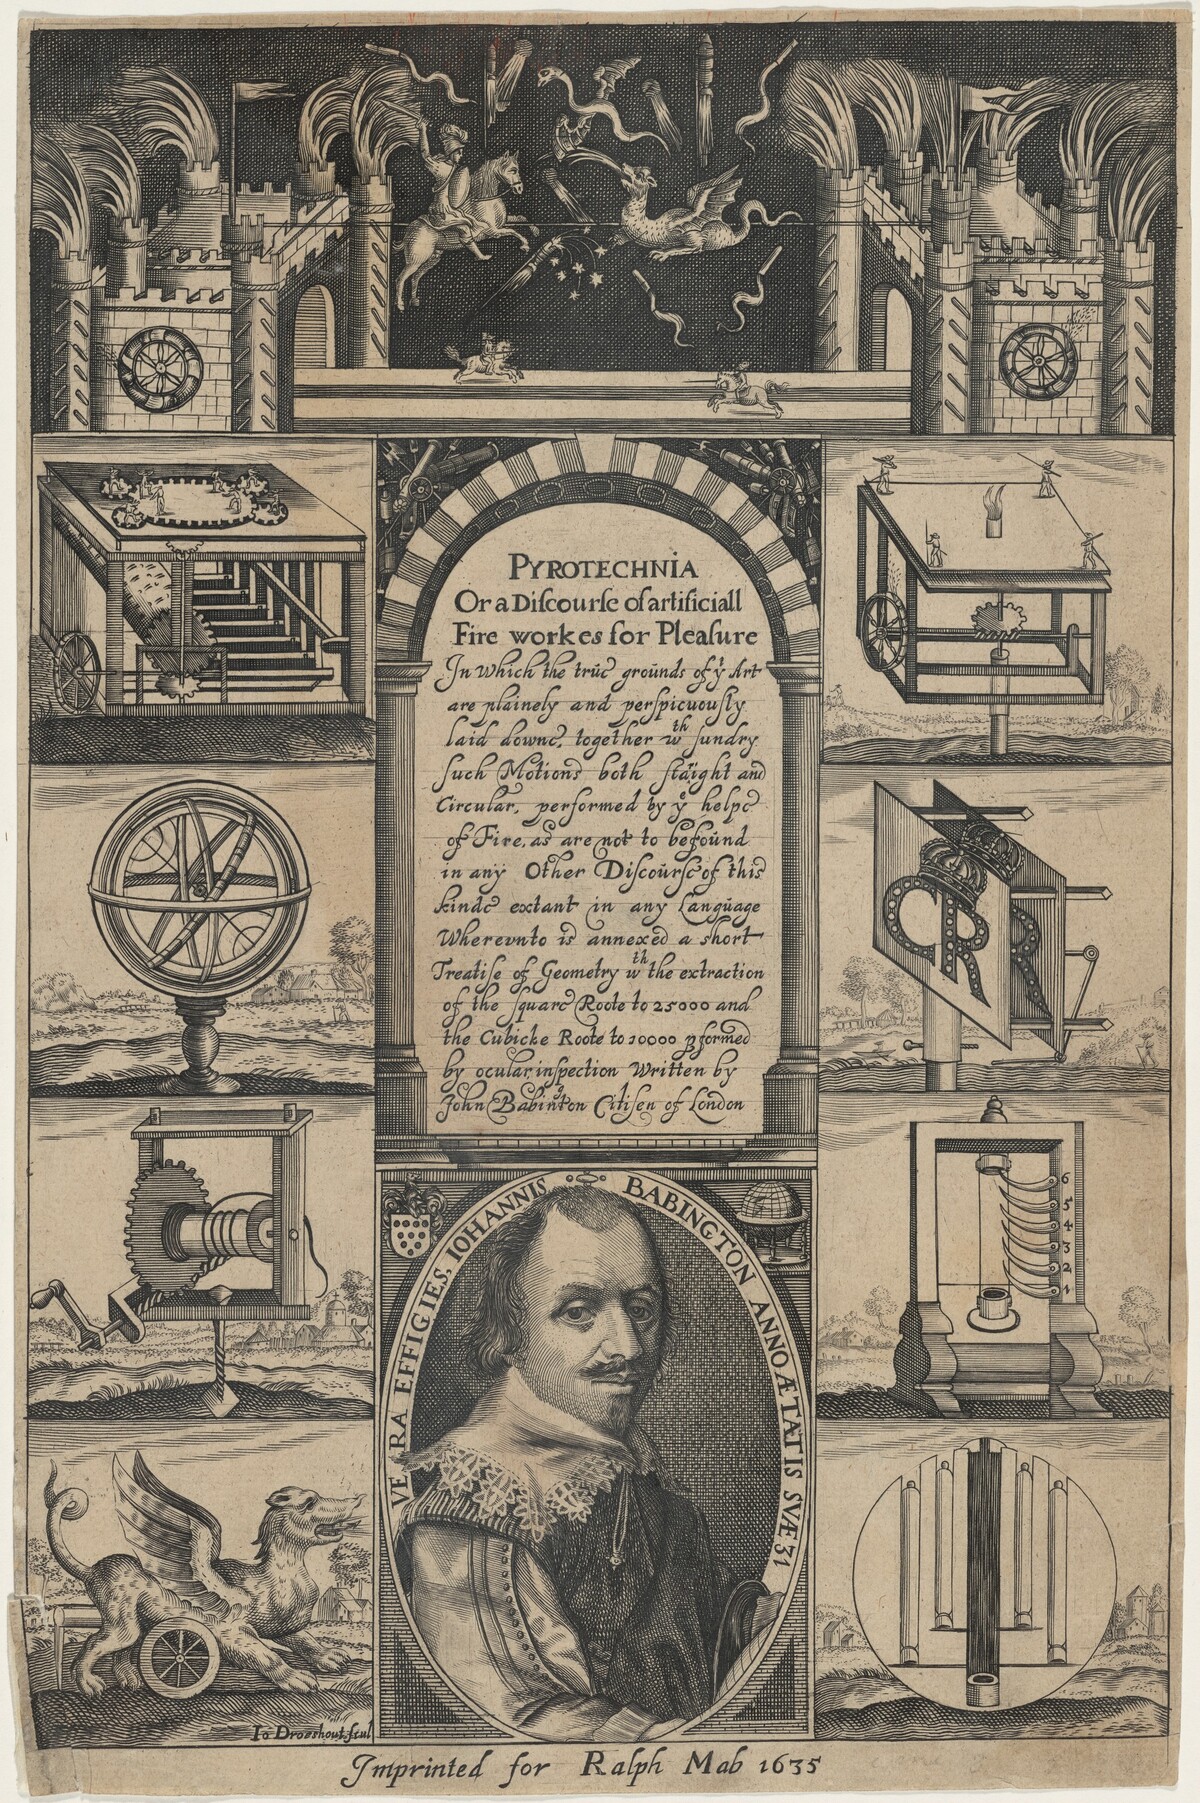 PYROTECHNIA
Or a Diſcourſe of artificiall
Fire workes for Pleaſure
In Which the true grounds of yͤ Art
are plainely and perſpicuouſly
laid downe, together wᵗʰ ſundry
ſuch Motions both ſtaight and
Circular, performed by yͤ helpe
of Fire, as are not to be found
in any Other Diſcourſe of this
kinde extant in any Language
Wherevnto is annexed a short
Treatiſe of Geometry wᵗʰ the extraction
of the ſquare Roote to 25000 and
the Cubicke Roote to 10000 ꝑformed
by ocular inſpection Written by
John Babington Citiſen of London
CR
6
5
4
3
2
1
VERA EFFIGIES, IOHANNIS BABINGTON ANNO ÆTATIS SVÆ 31
Io Droeshout ſcul
Imprinted for Ralph Mab 1635